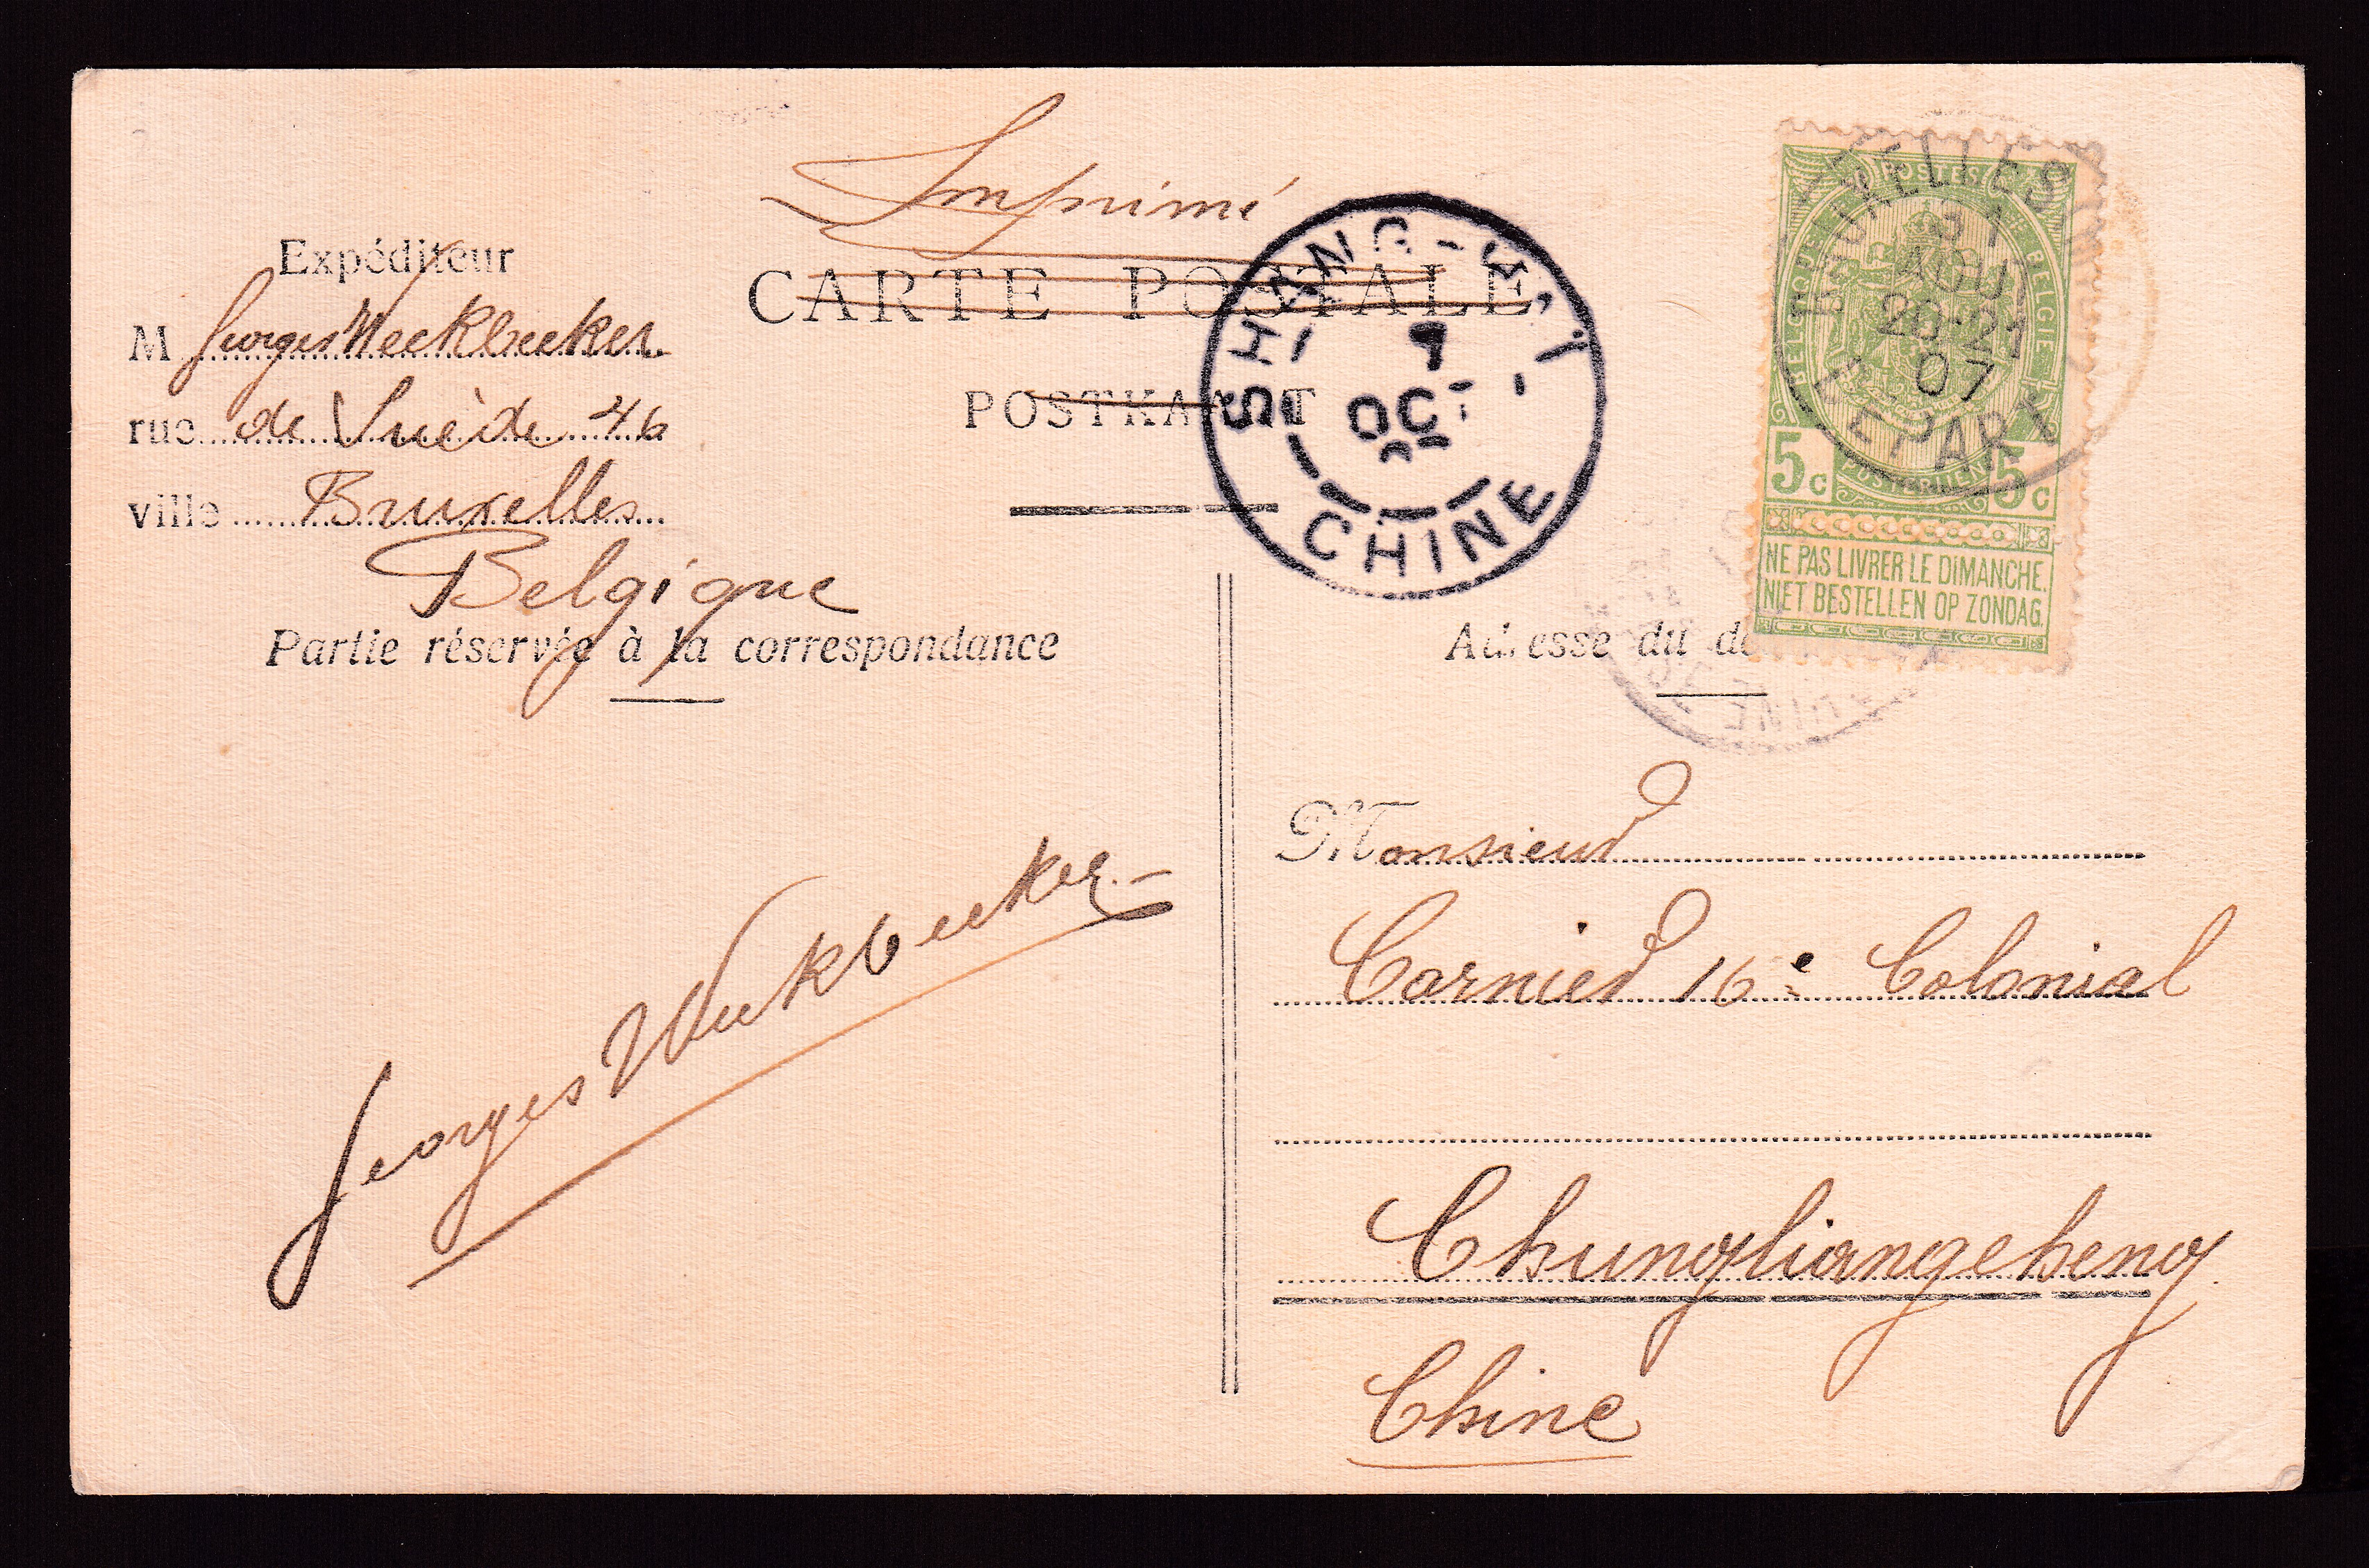 Imprimé
Expéditeur
CARTE POSTALE
M Georges Weekbecker
POSTKAART
rue de Suède 46
ville Bruxelles
Belgique
Partie réservée à la correspondance
SHANG-
7
OCT
CHINE
BRUXELLES
31
AOUT
20-21
07
DEPART
POSTES
BELGIQUE
BELGIE
POSTERIJEN
5c 5c
NE PAS LIVRER LE DIMANCHE.
NIET BESTELLEN OP ZONDAG.
Adresse du de
Monsieur
Carnier 16e Colonial
Chungliangcheng
Chine
Georges Weekbecker